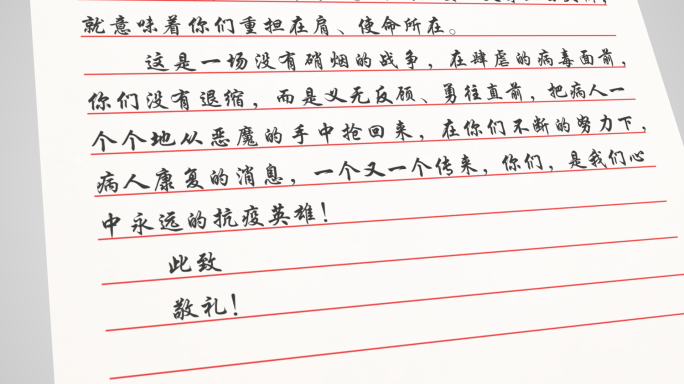 就意味着你们重担在肩、使命所在。
这是一场没有硝烟的战争，在肆虐的病毒面前，
你们没有退缩，而是义无反顾、勇往直前，把病人一
个个地从恶魔的手中抢回来，在你们不断的努力下，
病人康复的消息，一个又一个传来，你们，是我们心
中永远的抗疫英雄！
此致
敬礼！